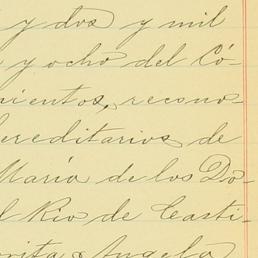 y dos y mil
y ocho del Có-
mientos, recono-
hereditarios de
María de los Do-
l Rio de Casti-
orita Angela